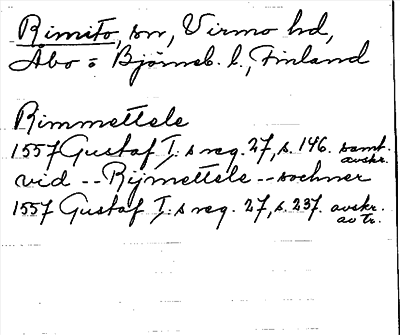 Rimito, sn, Virmo hd,
Åbo = Björneb. l., Finland
Rimmettele
1557 Gustaf I:s reg. 27, s. 146. samt. avskr.
vid -- Rijmettele -- sochner
1557 Gustaf I:s reg. 27, s. 237. avskr. av tr.